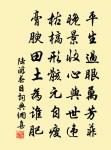 平生過眼萬芳菲
晚景收心與世違
枯槁形骸元自瘦
膏腴田土為誰肥
陸游荅目詞典網喜